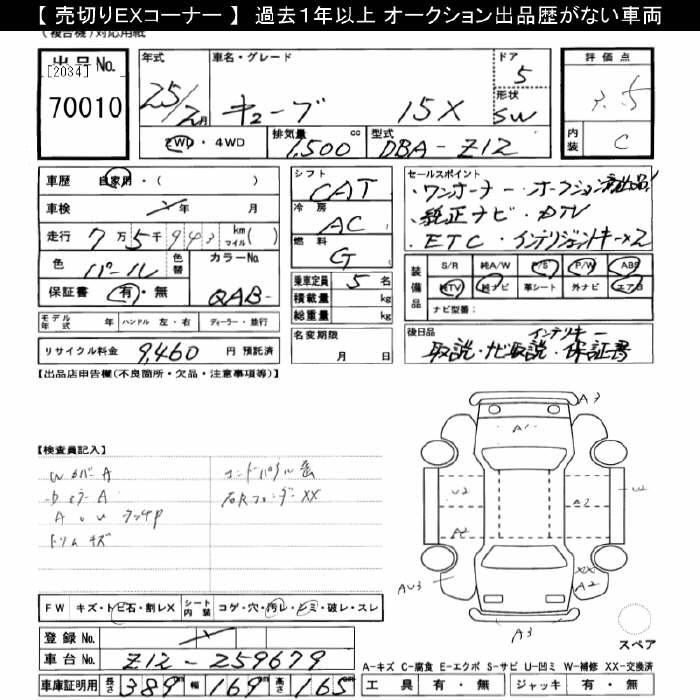 【 売切りEXコーナー 】 過去1年以上 オークション出品歴がない車両
(複合機)対応用紙
出品No.
[2034]
70010
年式
25/2月
車名・グレード
キューブ 15X
ドア
5
形状
SW
2WD・4WD
排気量
1,500 cc
型式
DBA-Z12
評価点
3.5
内装
C
車歴 自家用・( )
車検 年 月
走行 7万5千943 km マイル( )
色 パール 色替
カラーNo. QAB-
保証書 有・無
モデル年式 年 ハンドル 左・右 ディーラー・並行
リサイクル料金 9,460 円 預託済
シフト
CAT
冷房
AC
燃料
G
乗車定員 5 名
積載量 kg
総重量 kg
名変期限
月 日
セールスポイント
・ワンオーナー・オークション初出品!
・純正ナビ・DTV
・ETC・インテリジェントキー×2
装備品
S/R 純A/W P/S P/W ABS
純TV 純ナビ 革シート 外ナビ エアB
ナビ型番:
後日品
インテリキー
取説・ナビ取説・保証書
【出品店申告欄(不良箇所・欠品・注意事項等)】
【検査員記入】
Wカバー A
ドアミラー A
A U ラッチP
トリム キズ
右Rフェンダー XX
A3
A1
U2
A2
A2
U2
AU3
XX
A2
A3
スペア
FW キズ・トビ石・割レX
シート内装 コゲ・穴・汚レ・シミ・破レ・スレ
登録No.
車台No. Z12-259679
車庫証明用 長さ 389 幅 169 高さ 165
A-キズ C-腐食 E-エクボ S-サビ U-凹ミ W-補修 XX-交換済
工具 有・無 ジャッキ 有・無